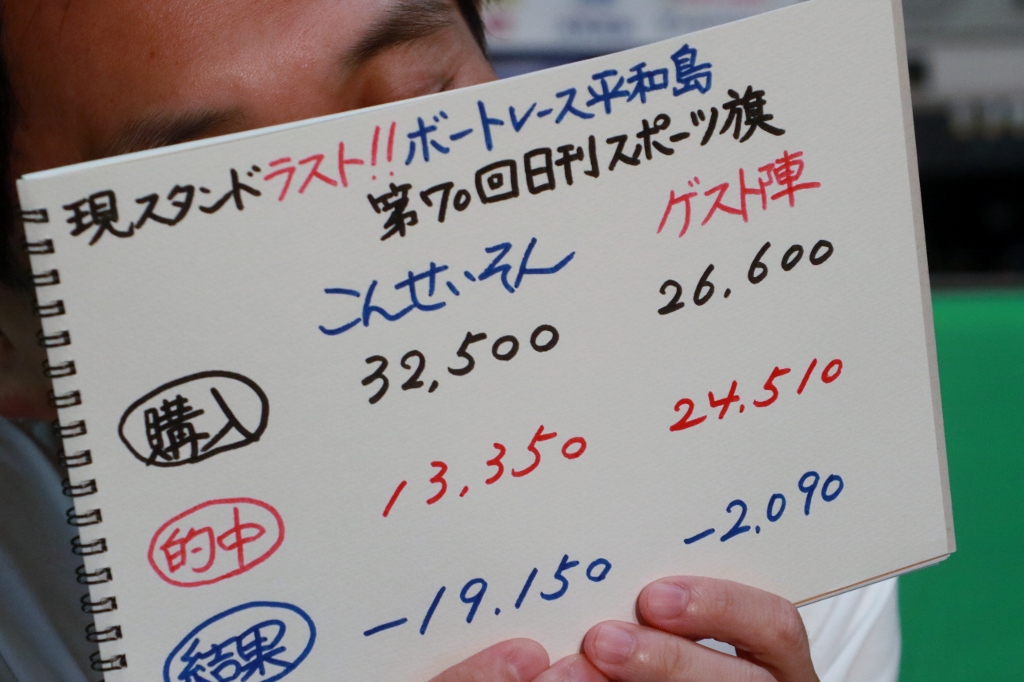 現スタンドラスト!!ボートレース平和島
第70回日刊スポーツ旗
こんせいそん ゲスト陣
購入 32,500 26.600
的中 13.350 24.510
結果 -19.150 -2.090